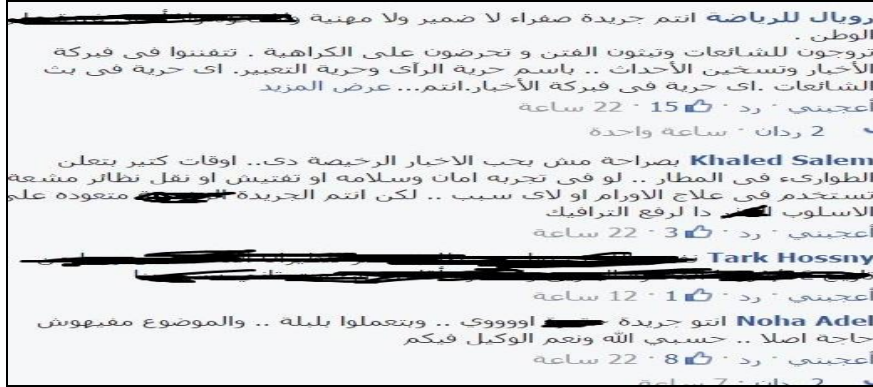 رويال للرياضة انتم جريدة صفراء لا ضمير ولا مهنية
الوطن .
تروجون للشائعات وتبثون الفتن و تحرضون على الكراهية . تتفننوا فى فبركة
الأخبار وتسخين الأحداث .. باسم حرية الرآى وحرية التعبير. اى حرية فى بث
الشائعات .اى حرية فى فبركة الأخبار.انتم... عرض المزيد
أعجبني · رد · 15 · 22 ساعة
2 ردان · ساعة واحدة
Khaled Salem بصراحة مش بحب الاخبار الرخيصة دى.. اوقات كتير بتعلن
الطوارىء فى المطار .. لو فى تجربه امان وسلامه او تفتيش او نقل نظائر مشعة
تستخدم فى علاج الاورام او لاى سبب .. لكن انتم الجريدة متعوده على
الاسلوب دا لرفع الترافيك
أعجبني · رد · 3 · 22 ساعة
Tark Hossny
أعجبني · رد · 1 · 12 ساعة
Noha Adel انتو جريدة اووووى .. وبتعملوا بلبلة .. والموضوع مفيهوش
حاجة اصلا .. حسبي الله ونعم الوكيل فيكم
أعجبني · رد · 8 · 22 ساعة
2 ردان · 7 ساعة